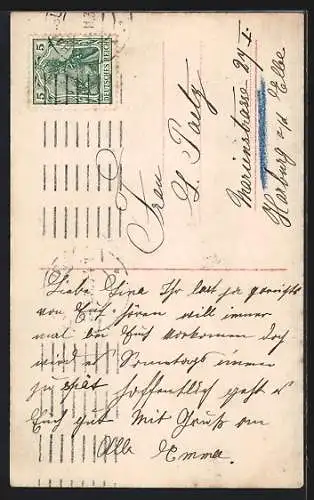 5 5
DEUTSCHES REICH
Frau
L. Paetz
Marienstrasse 27 I
Harburg a/d Elbe
Liebe Lina Ihr last ja garnichts
von Euch hören will immer
mal bei Euch vorkomen doch
wird es Sonntags immer
zu spät hoffentlich geht es
Euch gut Mit Gruß an
Alle Emma.